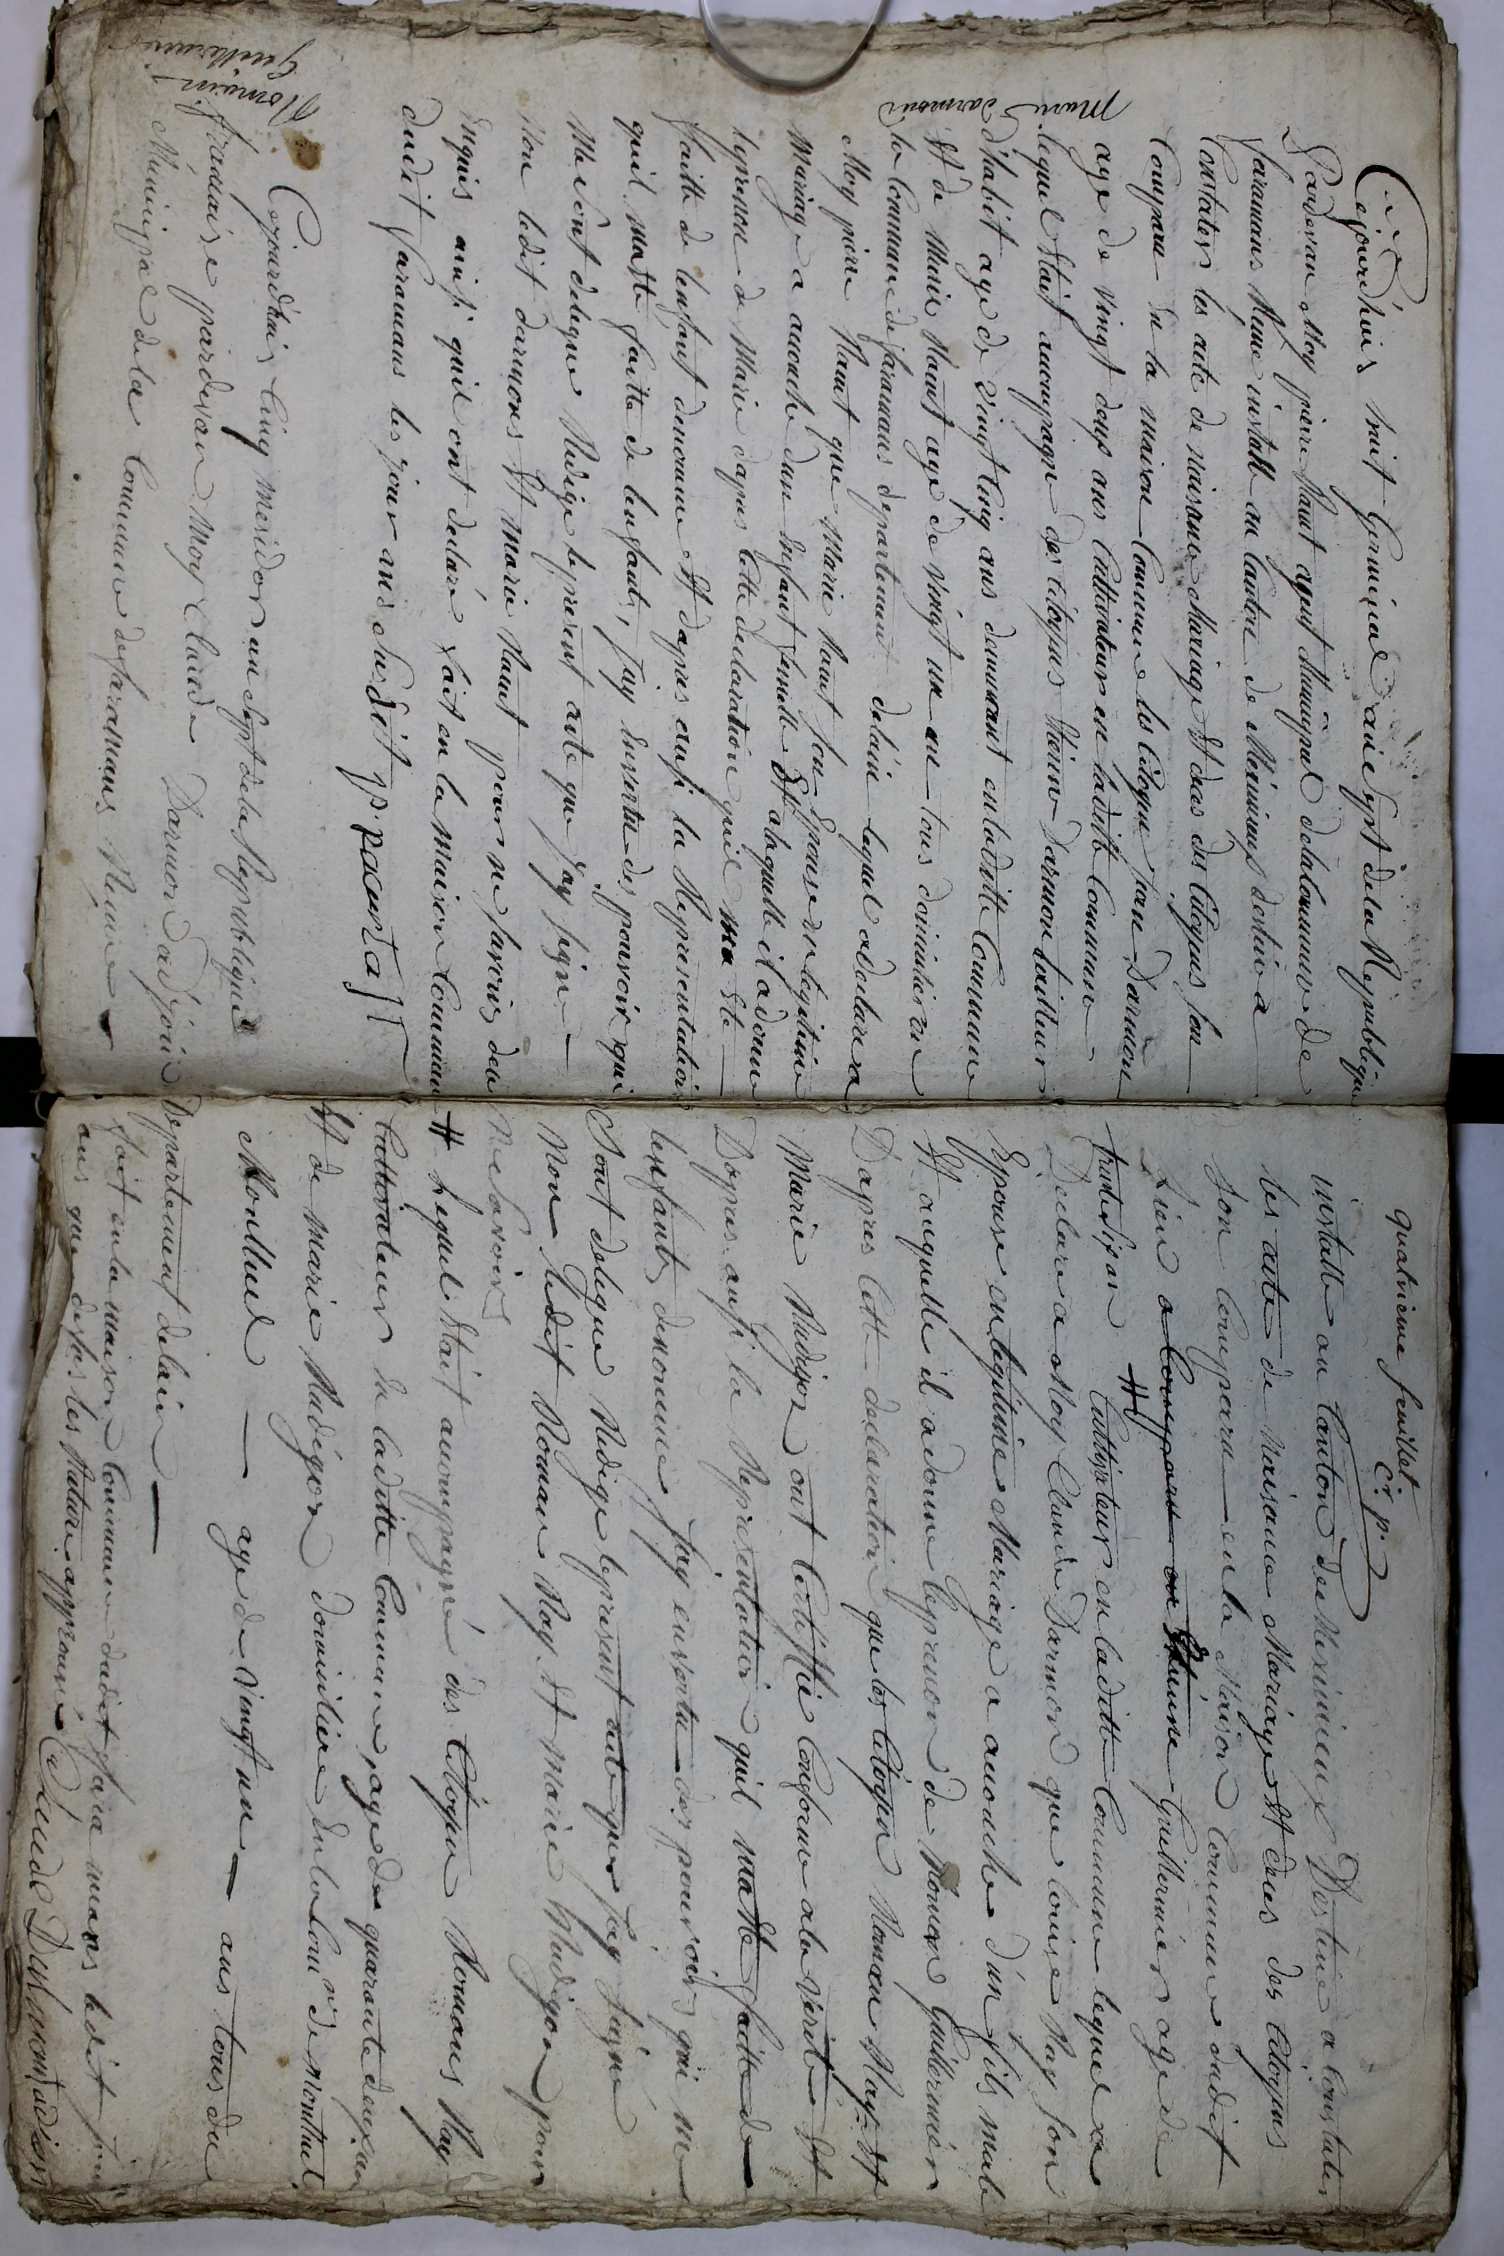 Cejourdhuis huit Germinal an sept de la Republique
Pardevan Moy pierre Nant agent Municipal dela Commune de
faramans Reuni install au Canton de Meximieux destiné a
Constater les acte de naisance Mariage Et deces des Citoyens son
Comparu en la maison Commune les Citoyen jean Darmon
age de vingt deux ans Cultivateur en laditte Commune
lequel Etait acompagne des Citoyens Etienne Darmon tailleur
d'habit age de vingt Cinq ans demeurant en laditte Commune
Et de Marie Nant age de vingt un an tous domicilie en
la Commune de faramans departement delain lequel a declarer a
Moy pierre Nant que Marie Nant son Epouse en legitime
Mariage a acouche dun Enfant femelle Et alaquelle il a donne
le prenon de Marie dapres Cette declaration quil ma Ete
faitte de lenfant denomme Et dapres ausi la Representation
quil maette faitte de lenfant, jay Envertu des pouvoir qui
Me sont delegue Redige le present acte que jay signe
Non ledit darmons Et Marie Nant pour ne savoir de ce
enquis ainsi quil ont declaré fait en la maison Commune
dudit faramans les jour an susdit p. nant ajt
Marie darmond
Cejourdhuis Cinq Mesidor an sept de la Republique
francaise pardevan Moy Claude Darmon adjoin
Municipal de la Commune de faramans Reunie
Romain Guillermin
quatrieme feuillet
C. p.
install au Canton de Meximieux Destiné a Constater
les acte de Naisance Mariage Et deces des Citoyens
Son Comparu en la Maison Commune dudit
Lieu Etiene Guillermier age de
trente six an # Cultivateur en laditte Commune lequel a
Declare a Moy Claude Darmon que louise Ray son
Epouse en legitime Mariage a acouche d'un fils male
Et auquelle il a donne le prenon de Roman Guillermier
D'apres Cette declaration que les Citoyen Roman Ray Et
Marie Radigon ont Certiffié Conforme a la verite Et
Dapres ausi la Representation quil ma ete faitte de
lenfant denomme jay envertu des pouvoirs qui me
Sont delegue Redige le present acte que jay signe
Non ledit Roman Ray Et Marie Radigon pour
Ne savoir
# Lequel Etait acompagné des Citoyen Romans Ray
Cultivateur en laditte Commune, age de quarante deux an
Et de Marie Radégon domiciliee en la Comne de Montluel
Montluel — age de vingt un — ans tous du
Departement delain —
fait en la maison Commune dudit faramans ledit jour
ans que desus les Rature approuvé Claude Darmont adjoin